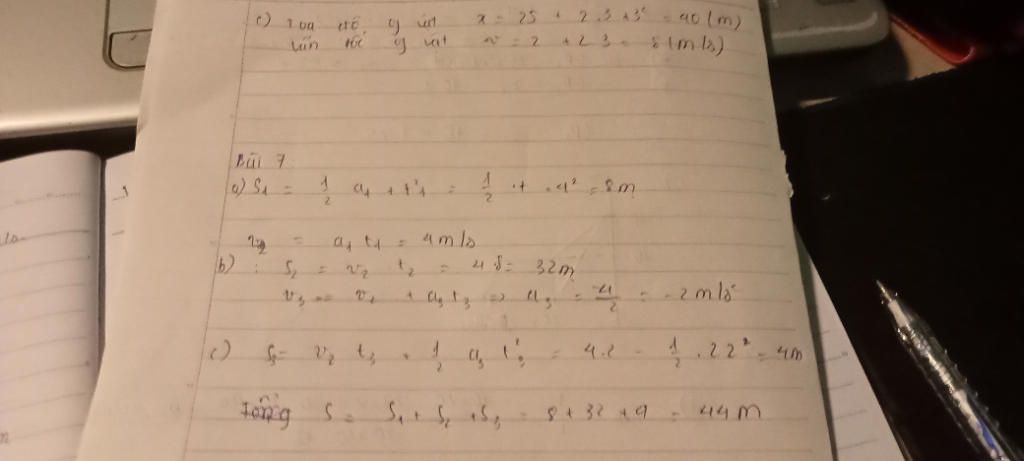 c) Toạ độ vật x = 25 + 2.3 + 3² = 40 (m)
vận tốc vật v = 2 + 2.3 = 8 (m/s)
Bài 7
a) S₁ = 1/2 a₁ t²₁ = 1/2 .1 .4² = 8m
v₂ = a₁ t₁ = 4m/s
b) : S₂ = v₂ t₂ = 4.8 = 32m
v₃ = v₂ + a₃ t₃ => a₃ = -4/2 = -2 m/s²
c) S₃ = v₂ t₃ + 1/2 a₃ t²₃ = 4.2 - 1/2 . 2 2² = 4m
Tổng S = S₁ + S₂ + S₃ = 8 + 32 + 4 = 44m